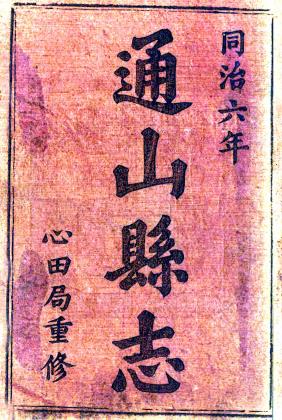 同治六年
通山縣志
心田局重修